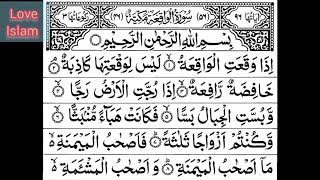 Love
Islam
اٰيَاتُهَا ٩٦ (٥٦) سُوْرَةُ الْوَاقِعَةِ مَكِّيَّةٌ (٤٦) رُكُوْعَاتُهَا ٣
بِسْمِ اللّٰهِ الرَّحْمٰنِ الرَّحِيْمِ
اِذَا وَقَعَتِ الْوَاقِعَةُ ۙ۱ لَيْسَ لِوَقْعَتِهَا كَاذِبَةٌ ۘ۲
خَافِضَةٌ رَّافِعَةٌ ۙ۳ اِذَا رُجَّتِ الْاَرْضُ رَجًّا ۙ۴
وَّبُسَّتِ الْجِبَالُ بَسًّا ۙ۵ فَكَانَتْ هَبَآءً مُّنْۢبَثًّا ۙ۶
وَّكُنْتُمْ اَزْوَاجًا ثَلٰثَةً ؕ۷ فَاَصْحٰبُ الْمَيْمَنَةِ ۙ
مَاۤ اَصْحٰبُ الْمَيْمَنَةِ ؕ۸ وَاَصْحٰبُ الْمَشْـَٔمَةِ ۙ